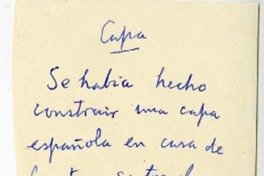 Capa
Se había hecho
construir una capa
española en casa de